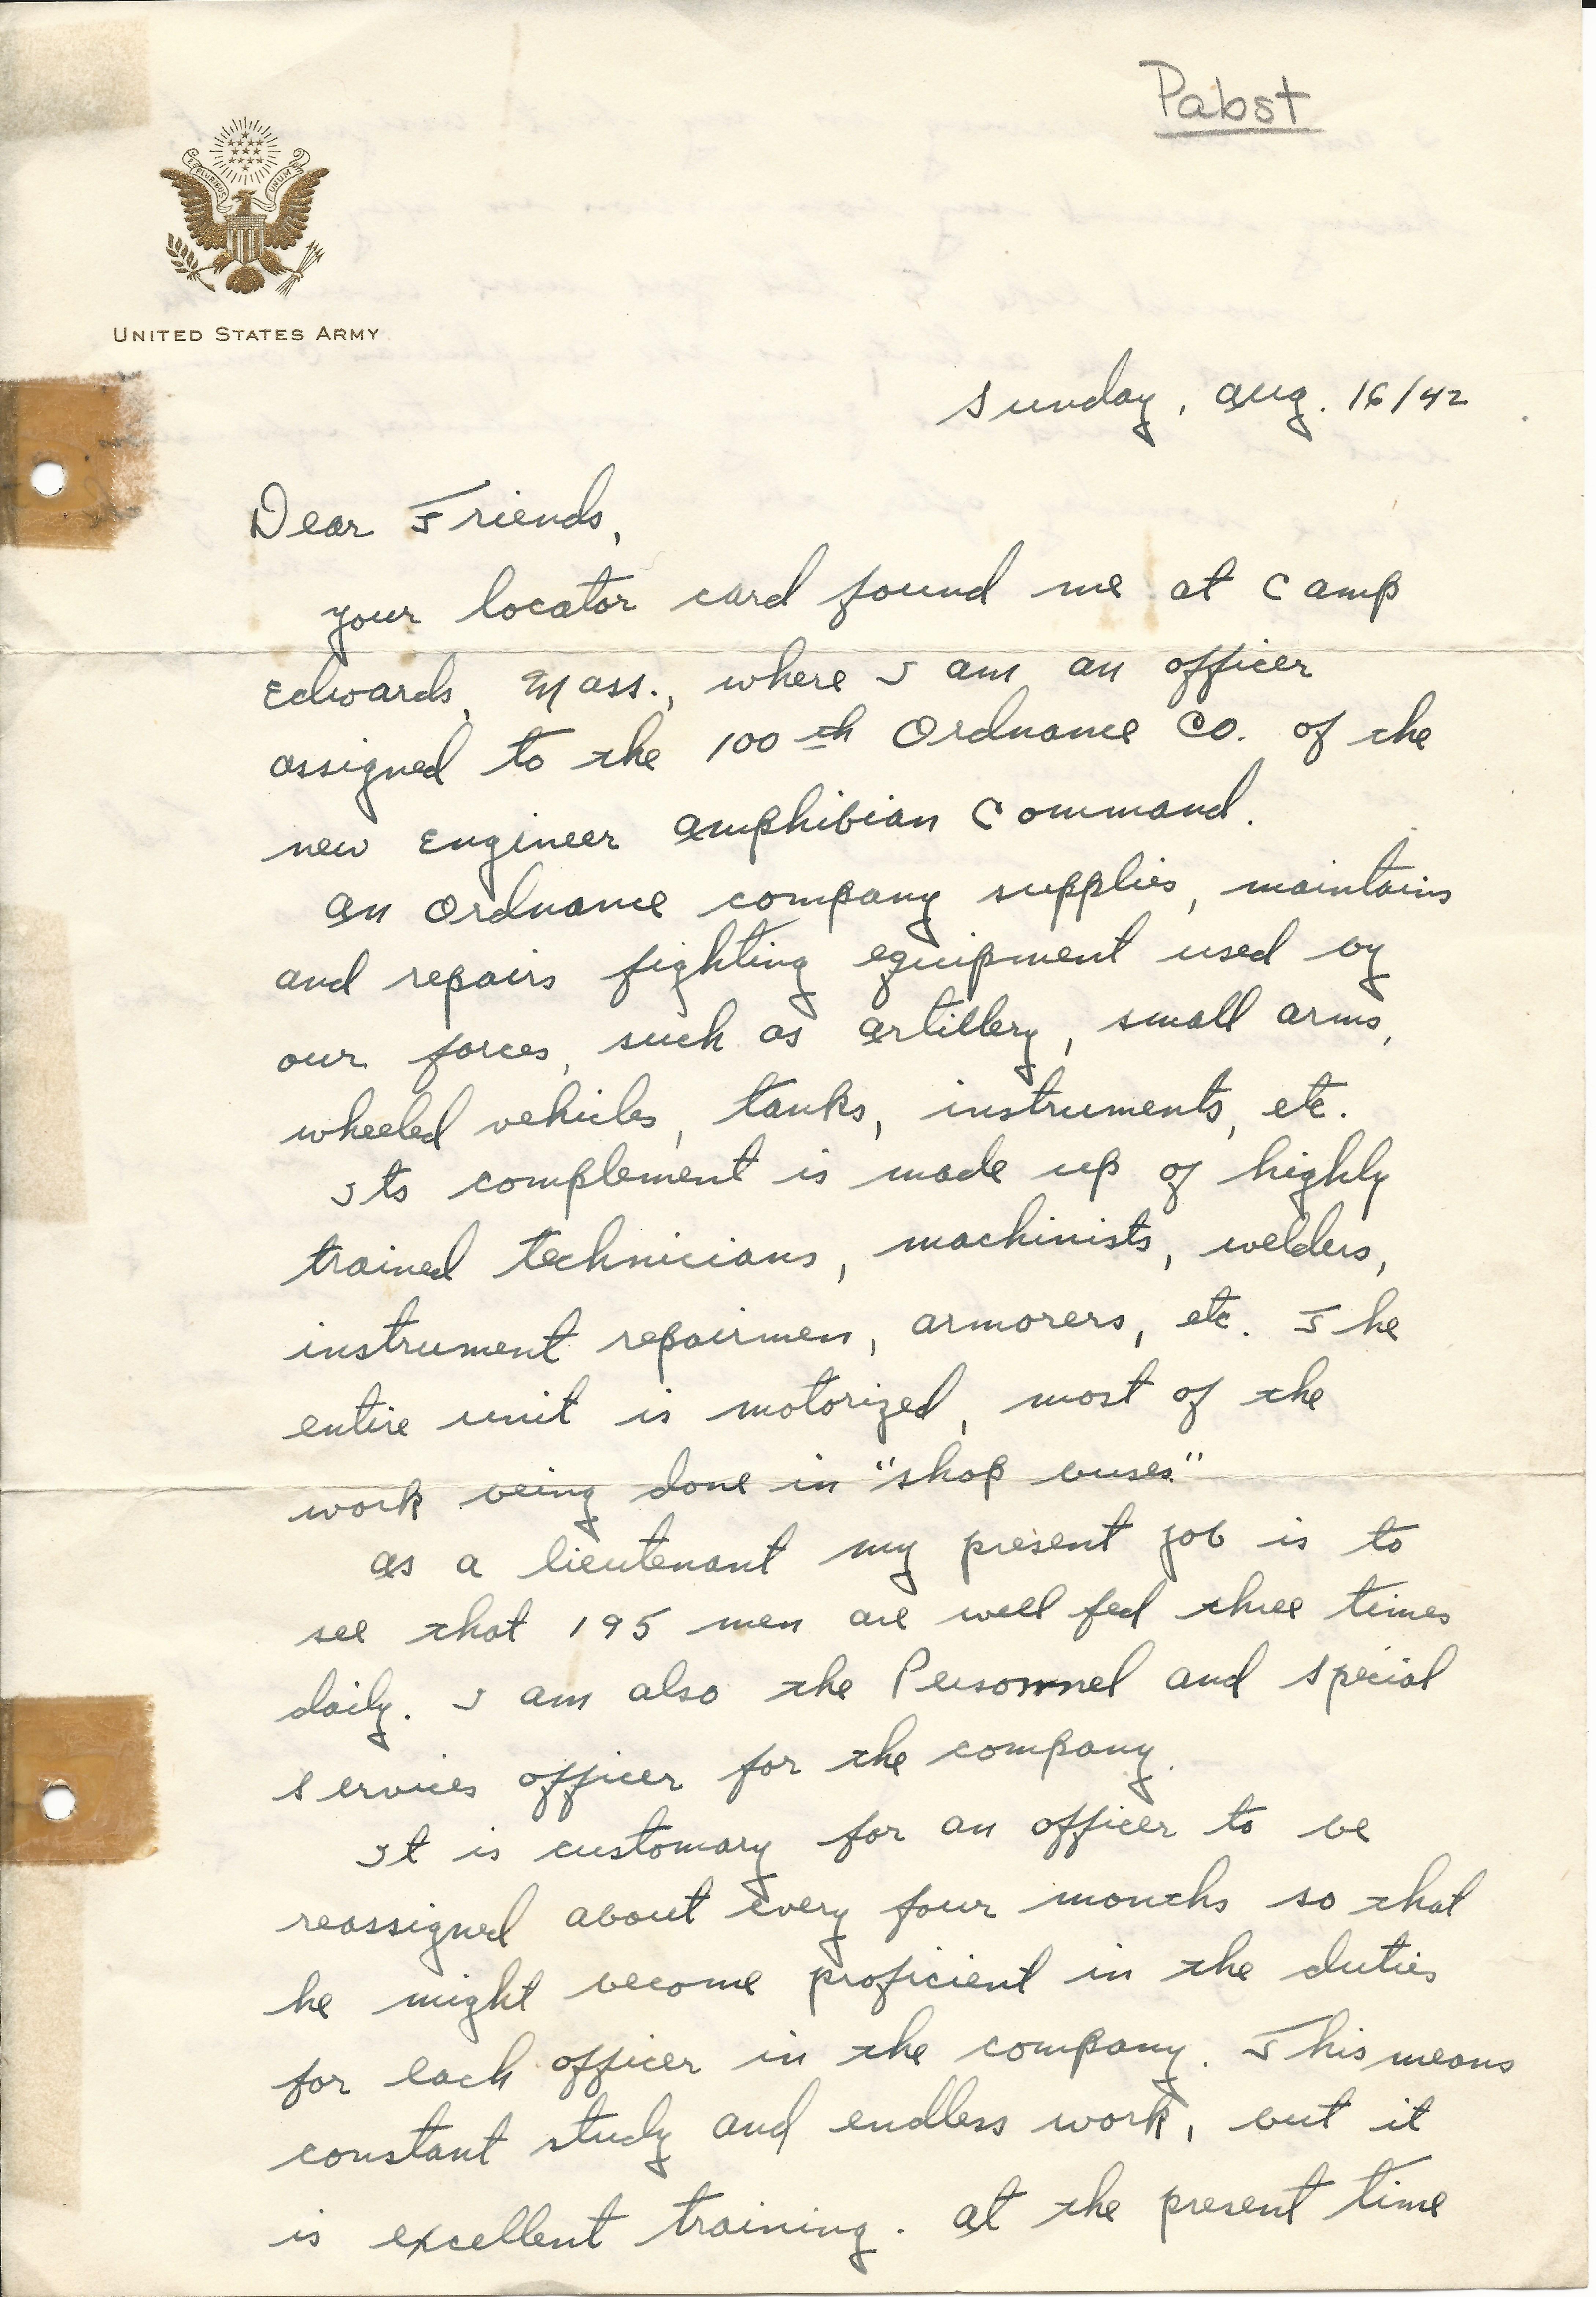 Pabst
E PLURIBUS UNUM
UNITED STATES ARMY
Sunday, Aug. 16/42
Dear Friends,
Your locator card found me at Camp
Edwards, Mass., where I am an officer
assigned to the 100th Ordnance Co. of the
new Engineer Amphibian Command.
An Ordnance company supplies, maintains
and repairs fighting equipment used by
our forces, such as artillery, small arms,
wheeled vehicles, tanks, instruments, etc.
Its complement is made up of highly
trained technicians, machinists, welders,
instrument repairmen, armorers, etc. The
entire unit is motorized, most of the
work being done in "shop buses"
As a lieutenant my present job is to
see that 195 men are well fed three times
daily. I am also the Personnel and Special
Services officer for the company.
It is customary for an officer to be
reassigned about every four months so that
he might become proficient in the duties
for each officer in the company. This means
constant study and endless work, but it
is excellent training. At the present time